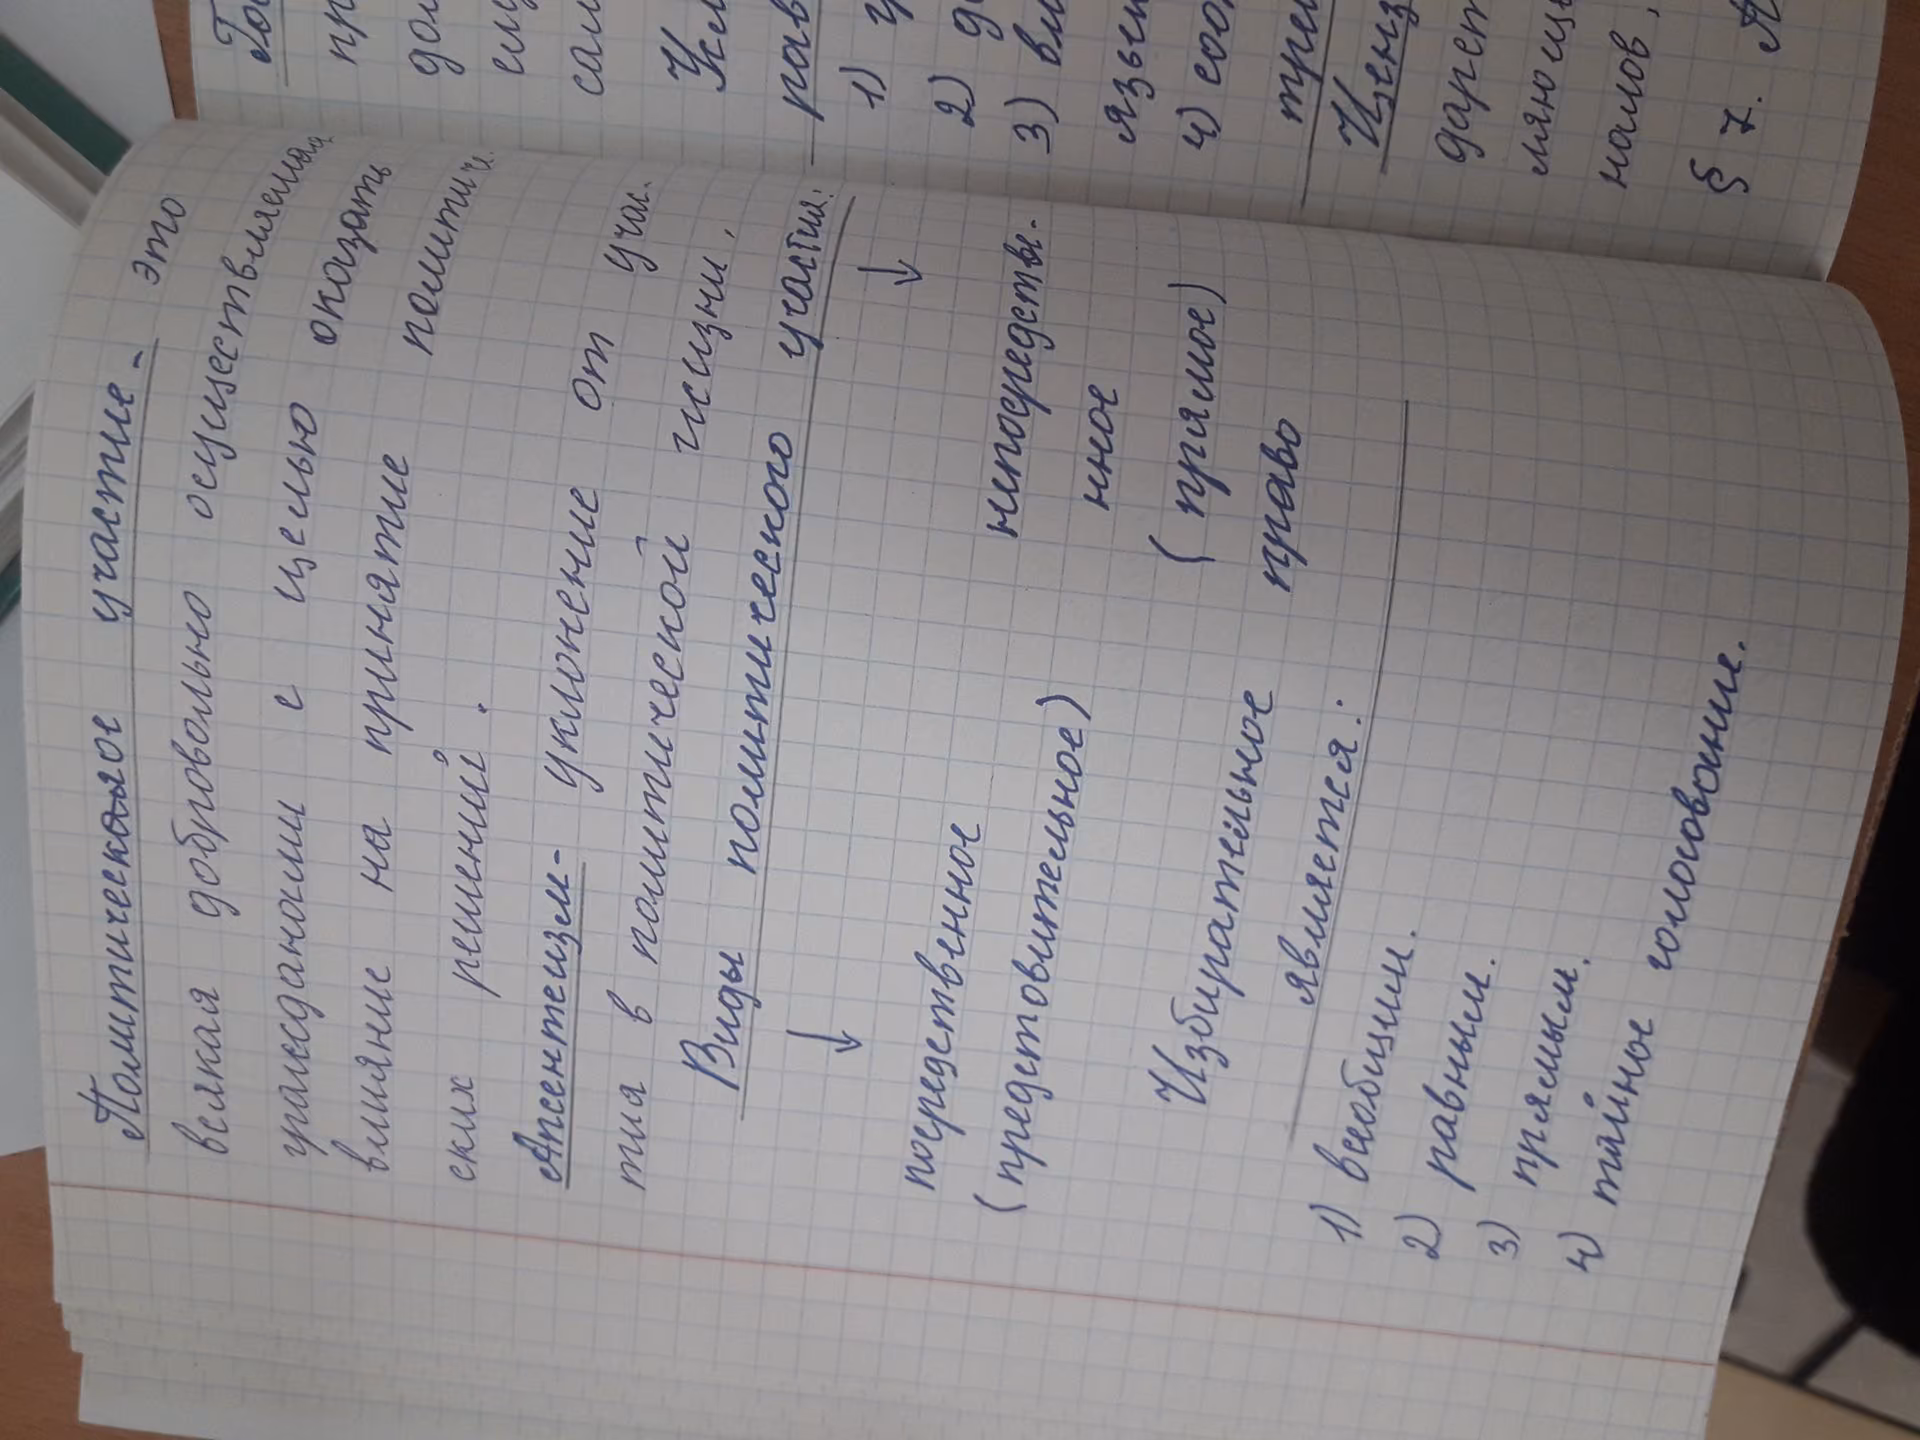 Политическое участие - это
всякая добровольно осуществляемая
гражданами с целью оказать
влияние на принятие политиче
ских решений.
Апсентеизм - уклонение от учас
тия в политической жизни.
Виды политического участия:
↓ ↓
посредственное непосредстве-
(предстовительное) нное
( прямое)
Избирательное право
является:
1) всеобщим.
2) равным.
3) прямым.
4) тайное голосование.
пр
дол
сам
рав
1) у
2) д
3) вл
язын
4) соот
трет
Ценз
дарст
налов,
§ 7. А